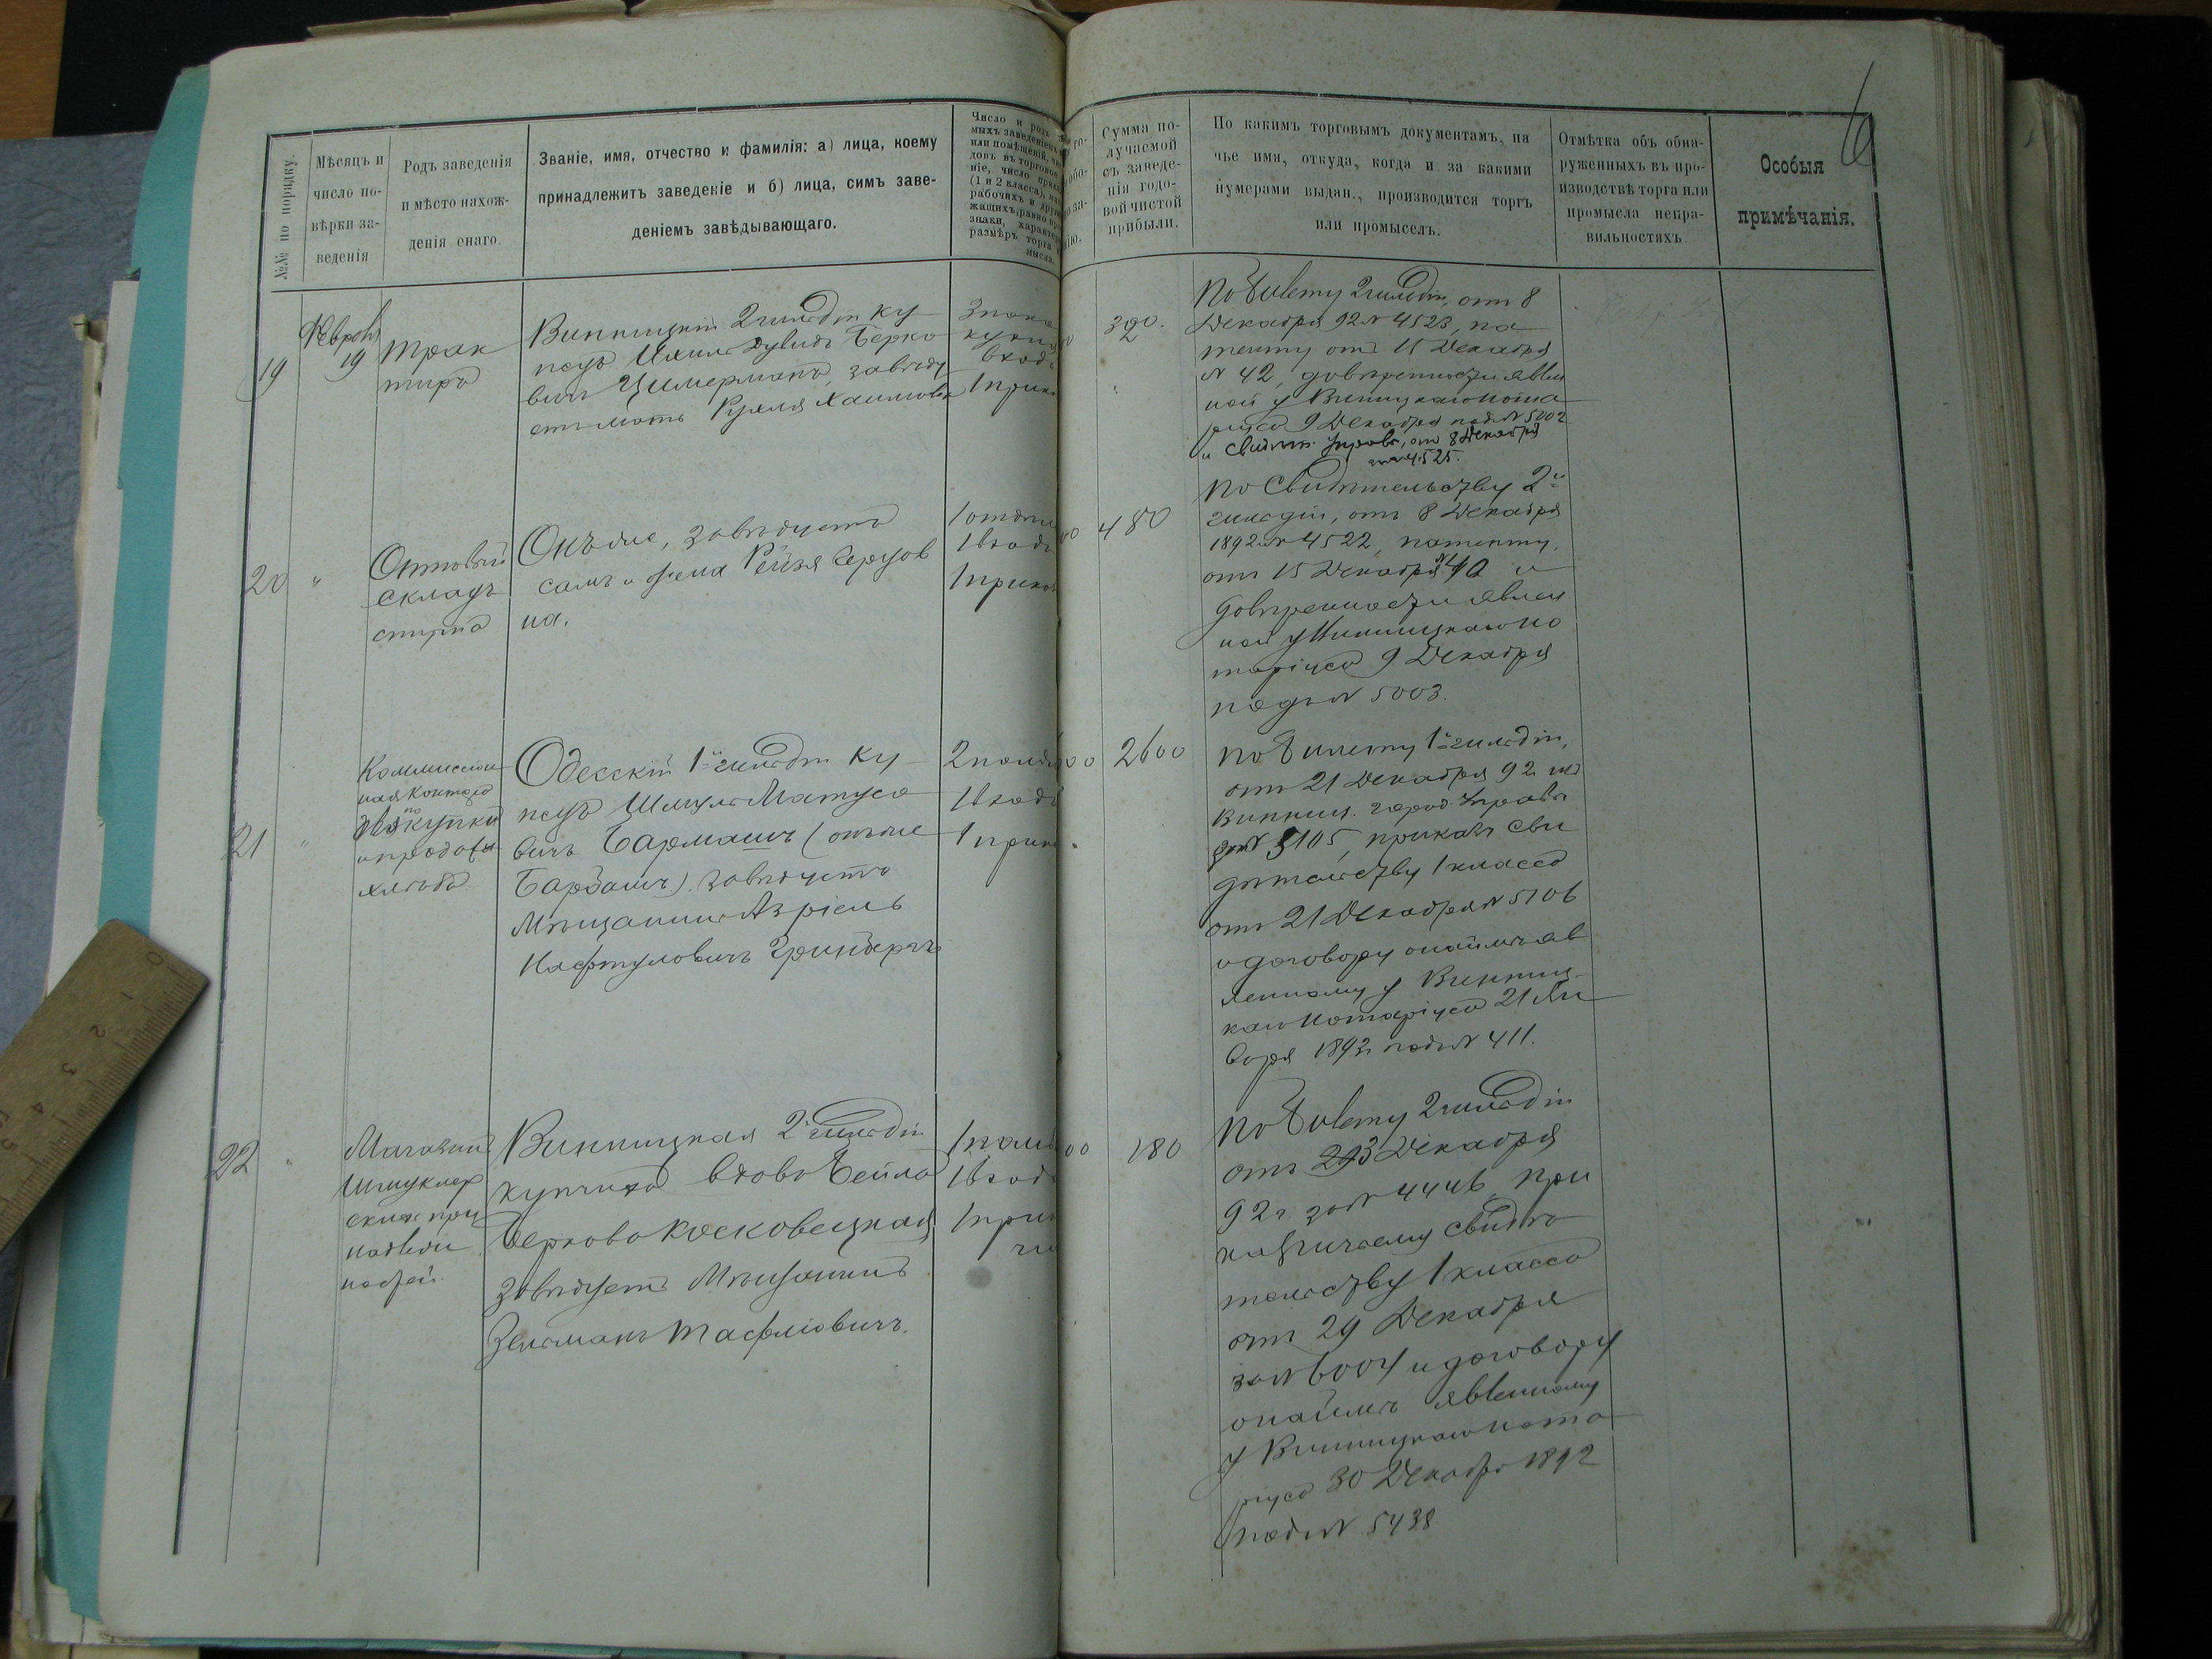 6
№№ по порядку.
Мѣсяцъ и
число по-
вѣрки за-
веденія
Родъ заведенія
и мѣсто нахож-
денія онаго.
Званіе, имя, отчество и фамилія: а) лица, коему
принадлежитъ заведеніе и б) лица, симъ заве-
деніемъ завѣдывающаго.
Число и родъ
мыхъ заведеніемъ
или помѣщеній,
довъ въ торговое
ніе, число
(1 и 2 класса),
рабочихъ и
жащихъ, равно
знаки,
размѣръ торга
мысла.
Сумма по-
лучаемой
съ заведе-
нія годо-
вой чистой
прибыли.
По какимъ торговымъ документамъ, на
чье имя, откуда, когда и за какими
нумерами выдан., производится торгъ
или промыселъ.
Отмѣтка объ обна-
руженныхъ въ про-
изводствѣ торга или
промысла непра-
вильностяхъ
Особыя
примѣчанія.
19
19
Трак
тиръ
Винницкій 2 гильдіи ку
пецъ Дувидъ Берко
вичъ Цимерманъ, завѣду
етъ мать Рухля Хаимовна
входъ
320.
По билету 2 гильдіи, отъ 8
Декабря 92 № 4523, па
тенту отъ 15 Декабря
№ 42, довѣренности явлен
ной у Винницкаго нота
ріуса 9 Декабря под № 5002
и свидѣт. Управы, отъ 8 Декабря
за № 4525.
20
"
Оптовый
складъ
спирта
Онъ же, завѣдуетъ
самъ и жена Рейзя Герцов
на.
1 входъ
480
По свидѣтельству 2й
гильдіи, отъ 8 Декабря
1892 № 4522, патенту,
отъ 15 Декабря и
довѣренности явлен
ной у Винницкаго но
таріуса 9 Декабря
подъ № 5003.
21
"
Коммиссіон
ная контора
по
покупки
и продажи
хлѣба.
Одесскій 1й гильдіи ку
пецъ Шмуль Матусо
вичъ Бармашъ (онъ же
Бардашъ). завѣдуетъ
Мѣщанинъ Азріель
Нафтуловичъ
1 входъ
2600
По билету 1й гильдіи,
отъ 21 Декабря 92
Винниц. город. Управы
за № 5105, приказч. сви
дѣтельству 1 класса
отъ 21 Декабря № 5106
и договору о наймѣ яв
ленному у Винниц-
каго нотаріуса 21 Ян
варя 1893 подъ № 411.
22
"
Магазинъ
Шмуклер
скихъ при
надлеж
ностей
Винницкая 2й гильдіи
купчиха вдова Бейла
Беркова Косковецкая
завѣдуетъ Мѣщанинъ
Зельманъ
1 входъ
180
По билету 2 гильдіи
отъ Декабря
92 г. за № 4446, при
казчичьему свидѣ
тельству 1 класса
отъ 29 Декабря
за № 6004 и договору
о наймѣ явленному
у Винницкаго нота
ріуса 30 Декабря 1892
подъ № 5438